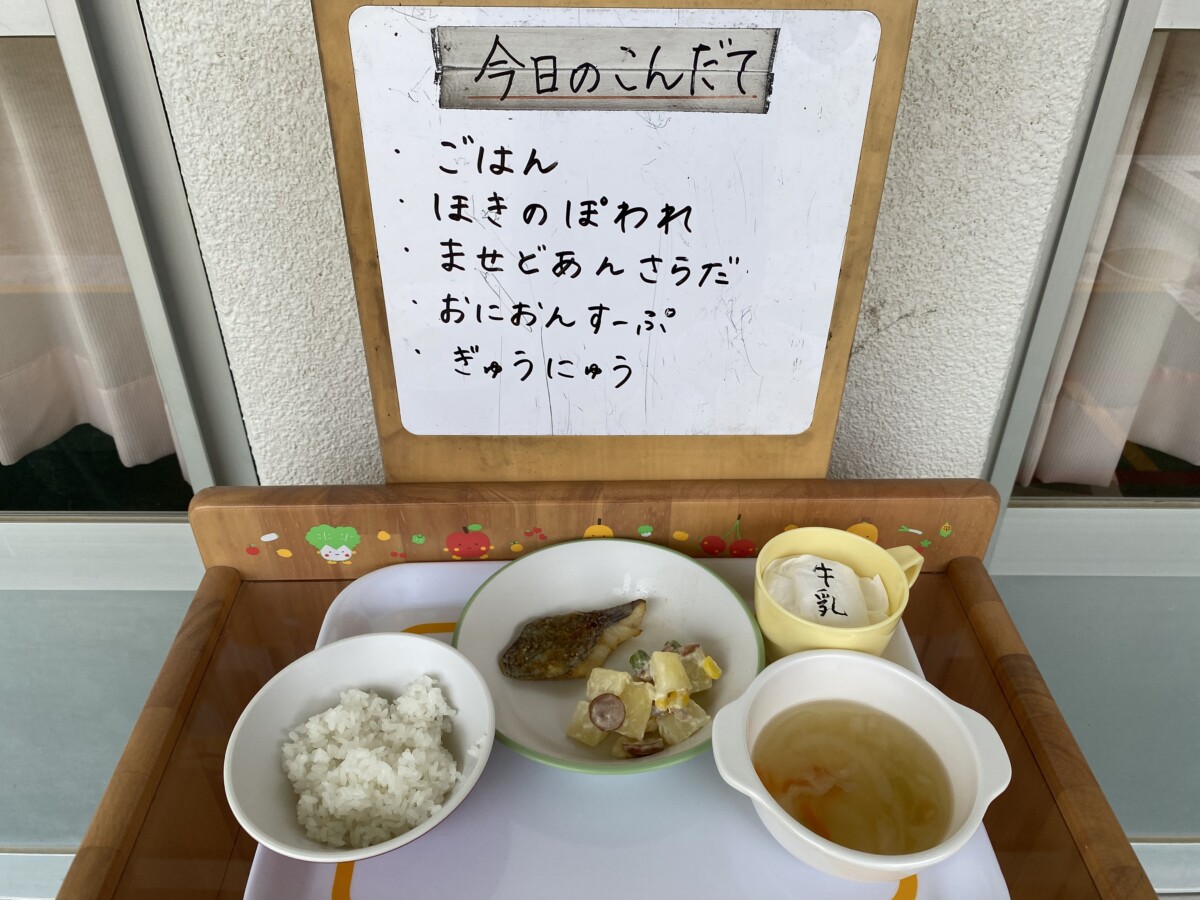 今日のこんだて
・ごはん
・ほきのぽわれ
・ませどあんさらだ
・おにおんすーぷ
・ぎゅうにゅう
牛乳